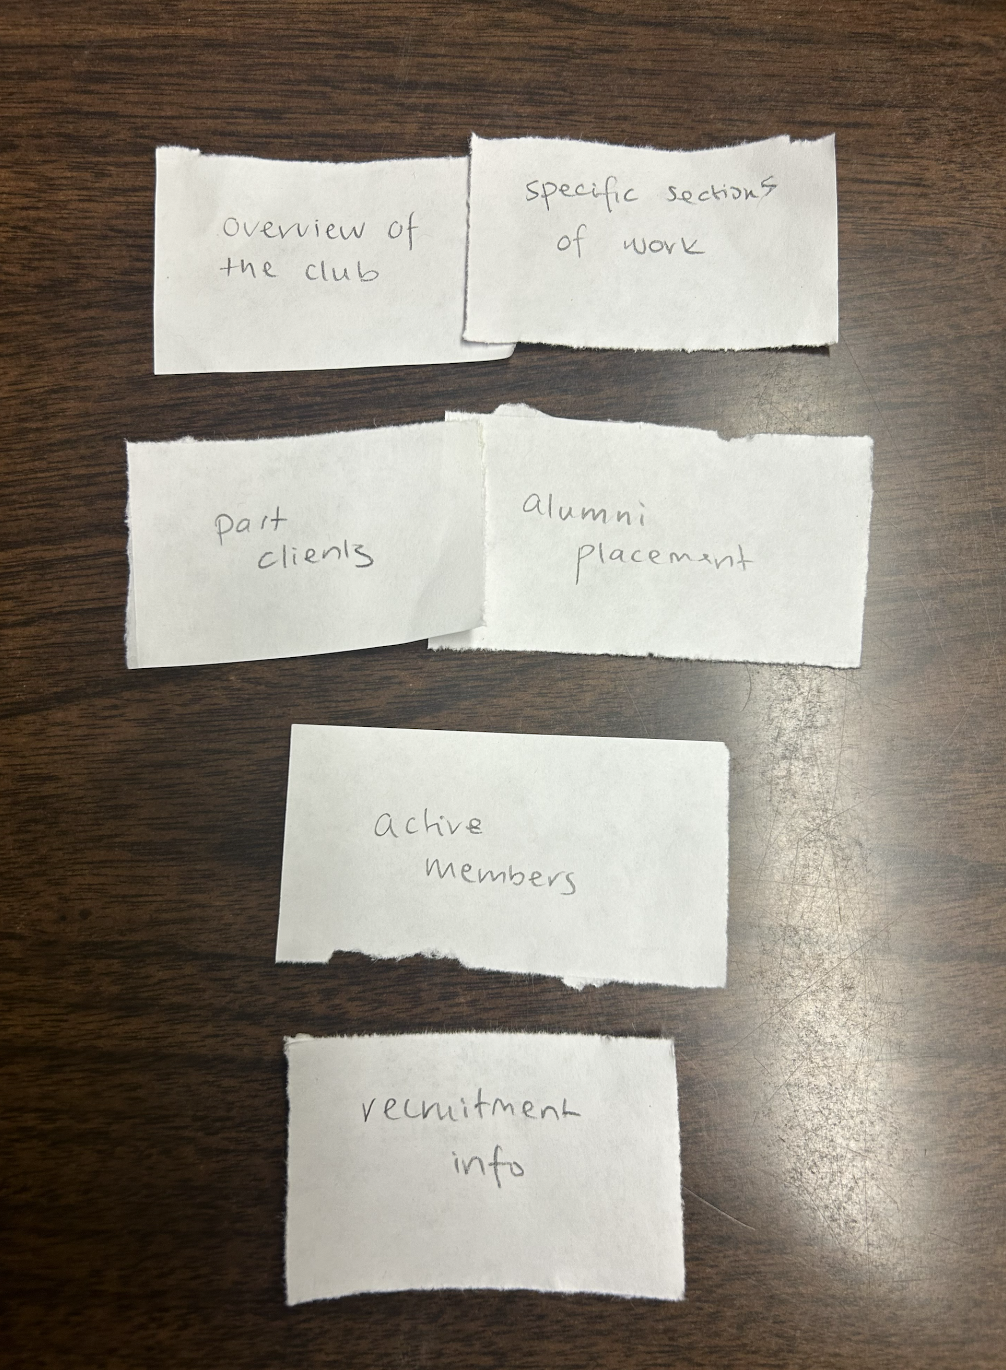 overview of
the club
specific sections
of work
past
clients
alumni
placement
active
members
recruitment
info